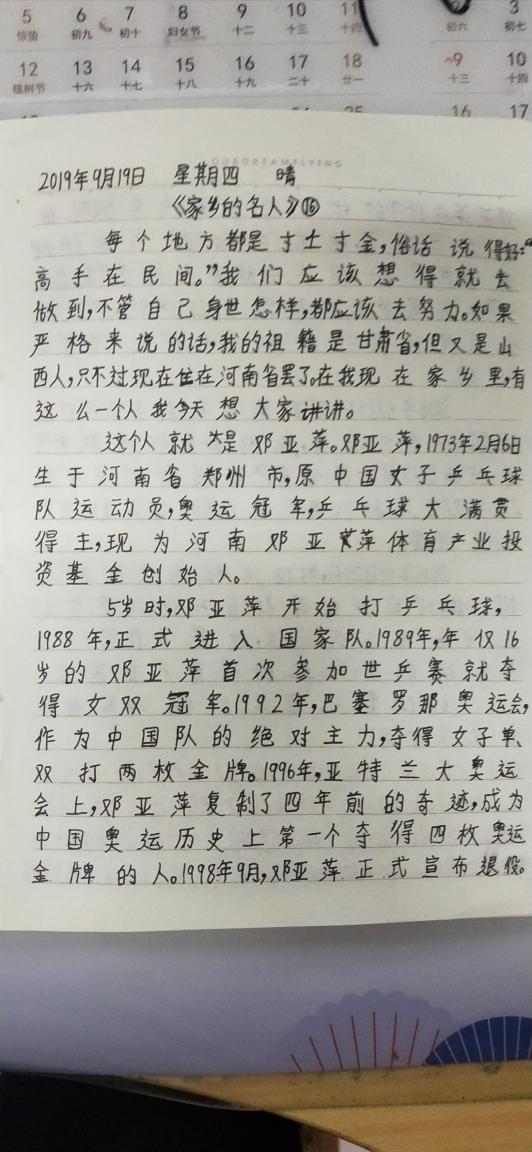 5 6 7 8 9 10 11 3
惊蛰 初九 初十 妇女节 十二 十三 十四 初六 初七
12 13 14 15 16 17 18 9 10
植树节 十六 十七 十八 十九 二十 廿一 十三 十四
25 16 17
OURDREAMFLYING
2019年9月19日 星期四 晴
《家乡的名人》⑯
每个地方都是寸土寸金,俗话说得好:“
高手在民间。”我们应该想得就去
做到,不管自己身世怎样,都应该去努力。如果
严格来说的话,我的祖籍是甘肃省,但又是山
西人,只不过现在住在河南省罢了。在我现在家乡里,有
这么一个人我今天想大家讲讲。
这个人就是邓亚萍。邓亚萍,1973年2月6日
生于河南省郑州市,原中国女子乒乓球
队运动员,奥运冠军,乒乓球大满贯
得主,现为河南邓亚萍体育产业投
资基金创始人。
5岁时,邓亚萍开始打乒乓球,
1988年,正式进入国家队。1989年,年仅16
岁的邓亚萍首次参加世乒赛就夺
得女双冠军。1992年,巴塞罗那奥运会,
作为中国队的绝对主力,夺得女子单、
双打两枚金牌。1996年,亚特兰大奥运
会上,邓亚萍复制了四年前的奇迹,成为
中国奥运历史上第一个夺得四枚奥运
金牌的人。1998年9月,邓亚萍正式宣布退役。